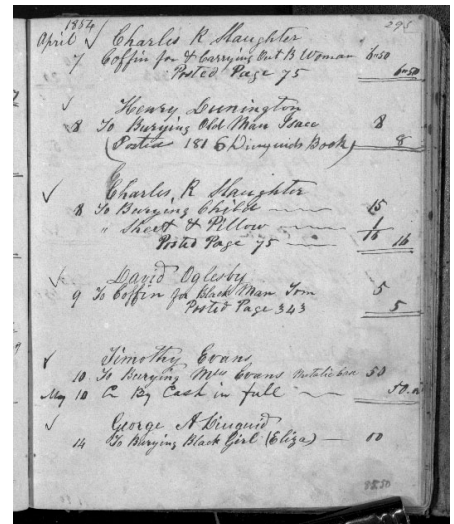 1854 293
April ✓ Charles R Slaughter
7 Coffin for & Carrying Out B Woman 6-50
Posted Page 75 6-50
✓ Henry Dunington
8 To Burying Old Man Isaac 8
(Posted 181 G Diuguids Book) 8
✓ Charles, R Slaughter
8 To Burying Child 15
" Sheet & Pillow 1
Posted Page 75 16 16
✓ David Oglesby
9 To Coffin for Black Man Tom 5
Posted Page 343 5
✓ Timothy Evans
10 To Burying Mrs Evans 50
May 10 Cr By Cash in full 50.
✓ George A Diuguid
14 To Burying Black Girl (Eliza) — 00